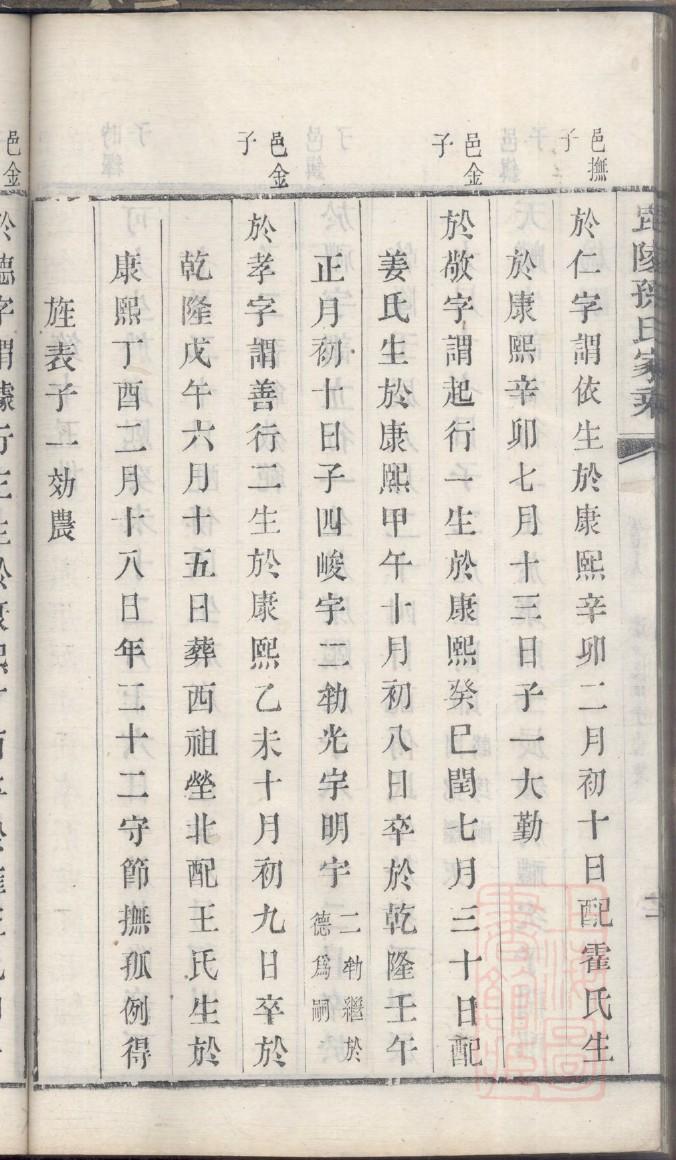 毘陵孫氏家乘
邑撫子
於仁字謂依生於康熙辛卯二月初十日配霍氏生
於康熙辛卯七月十三日子一大勤
邑金子
於敬字謂起行一生於康熙癸巳閏七月三十日配
姜氏生於康熙甲午十月初八日卒於乾隆壬午
正月初十日子四峻宇二勑光宇明宇二勑繼於德爲嗣
邑金子
於孝字謂善行二生於康熙乙未十月初九日卒於
乾隆戊午六月十五日葬西祖塋北配王氏生於
康熙丁酉二月十八日年二十二守節撫孤例得
旌表子一効農
邑金
於德字謂據行三生於康熙